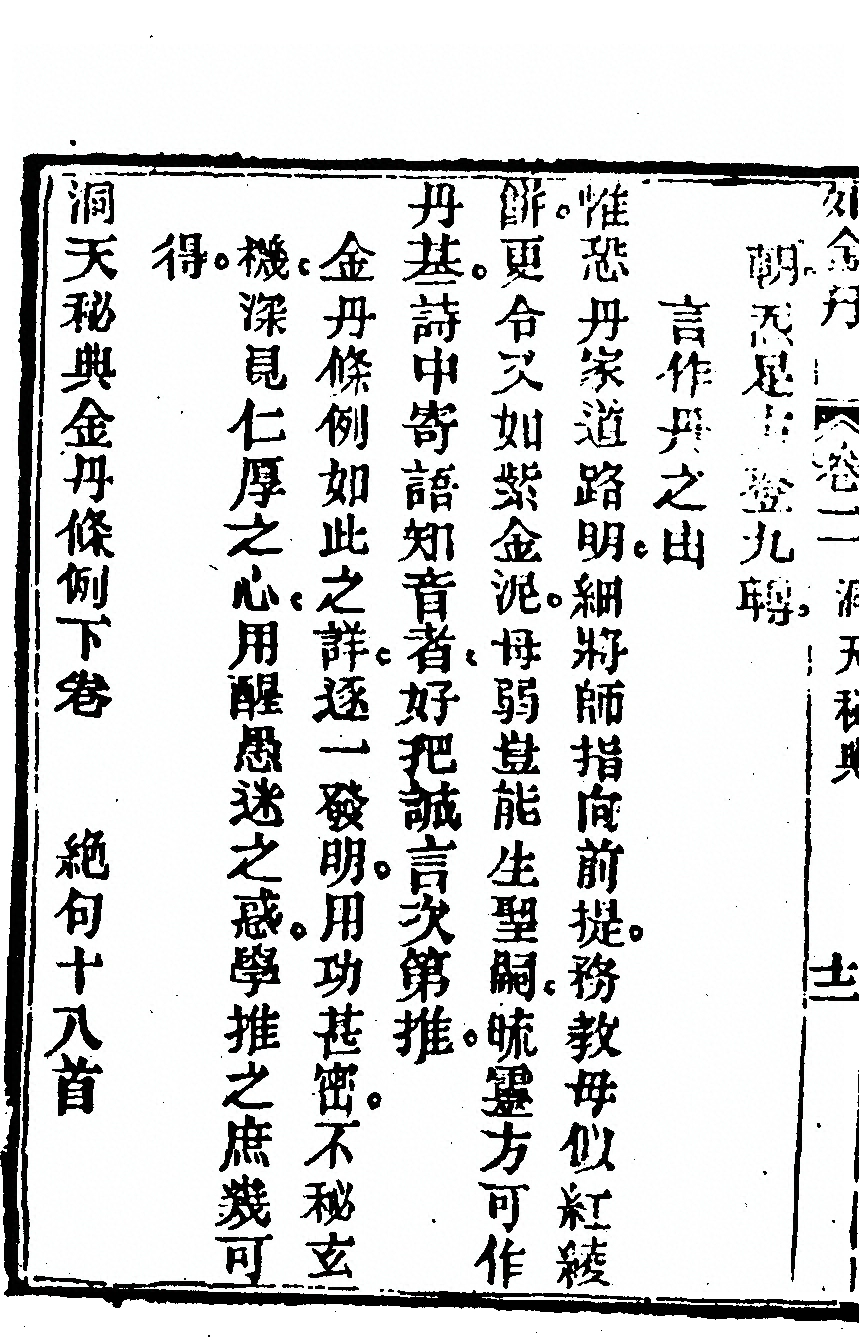 如金丹 卷二 洞天秘典 十二
朝忝是
登九轉。
言作丹之由
惟恐丹家道路明。細將師指向前提。務教母似紅綾
餅。更令又如紫金泥。母弱豈能生聖嗣。
靈方可作
丹基。詩中寄語知音者。好把誠言次第推。
金丹條例如此之詳。逐一發明。用功甚密。不秘玄
機。深見仁厚之心。用醒愚迷之惑。學推之庶幾可
得。
洞天秘典金丹條例下卷 絕句十八首